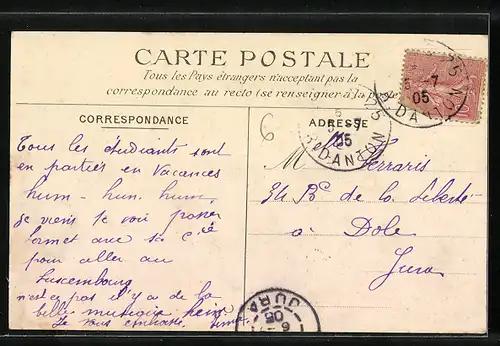 CARTE POSTALE
Tous les Pays étrangers n'acceptent pas la
correspondance au recto (se renseigner à la p
CORRESPONDANCE
ADRESSE
6
Tous les étudiants sont
en parties en vacances
hum - hum. hum,
je viens te voir passer
avec ta Cie
pour aller au
Luxembourg
n'est ce pas il y a de la
belle musique hein
Je vous embrasse.
M Ferraris
34 Rs de la Liberté
à Dole
Jura
R. DANTON
05
R. DANTON
05
JURA
05